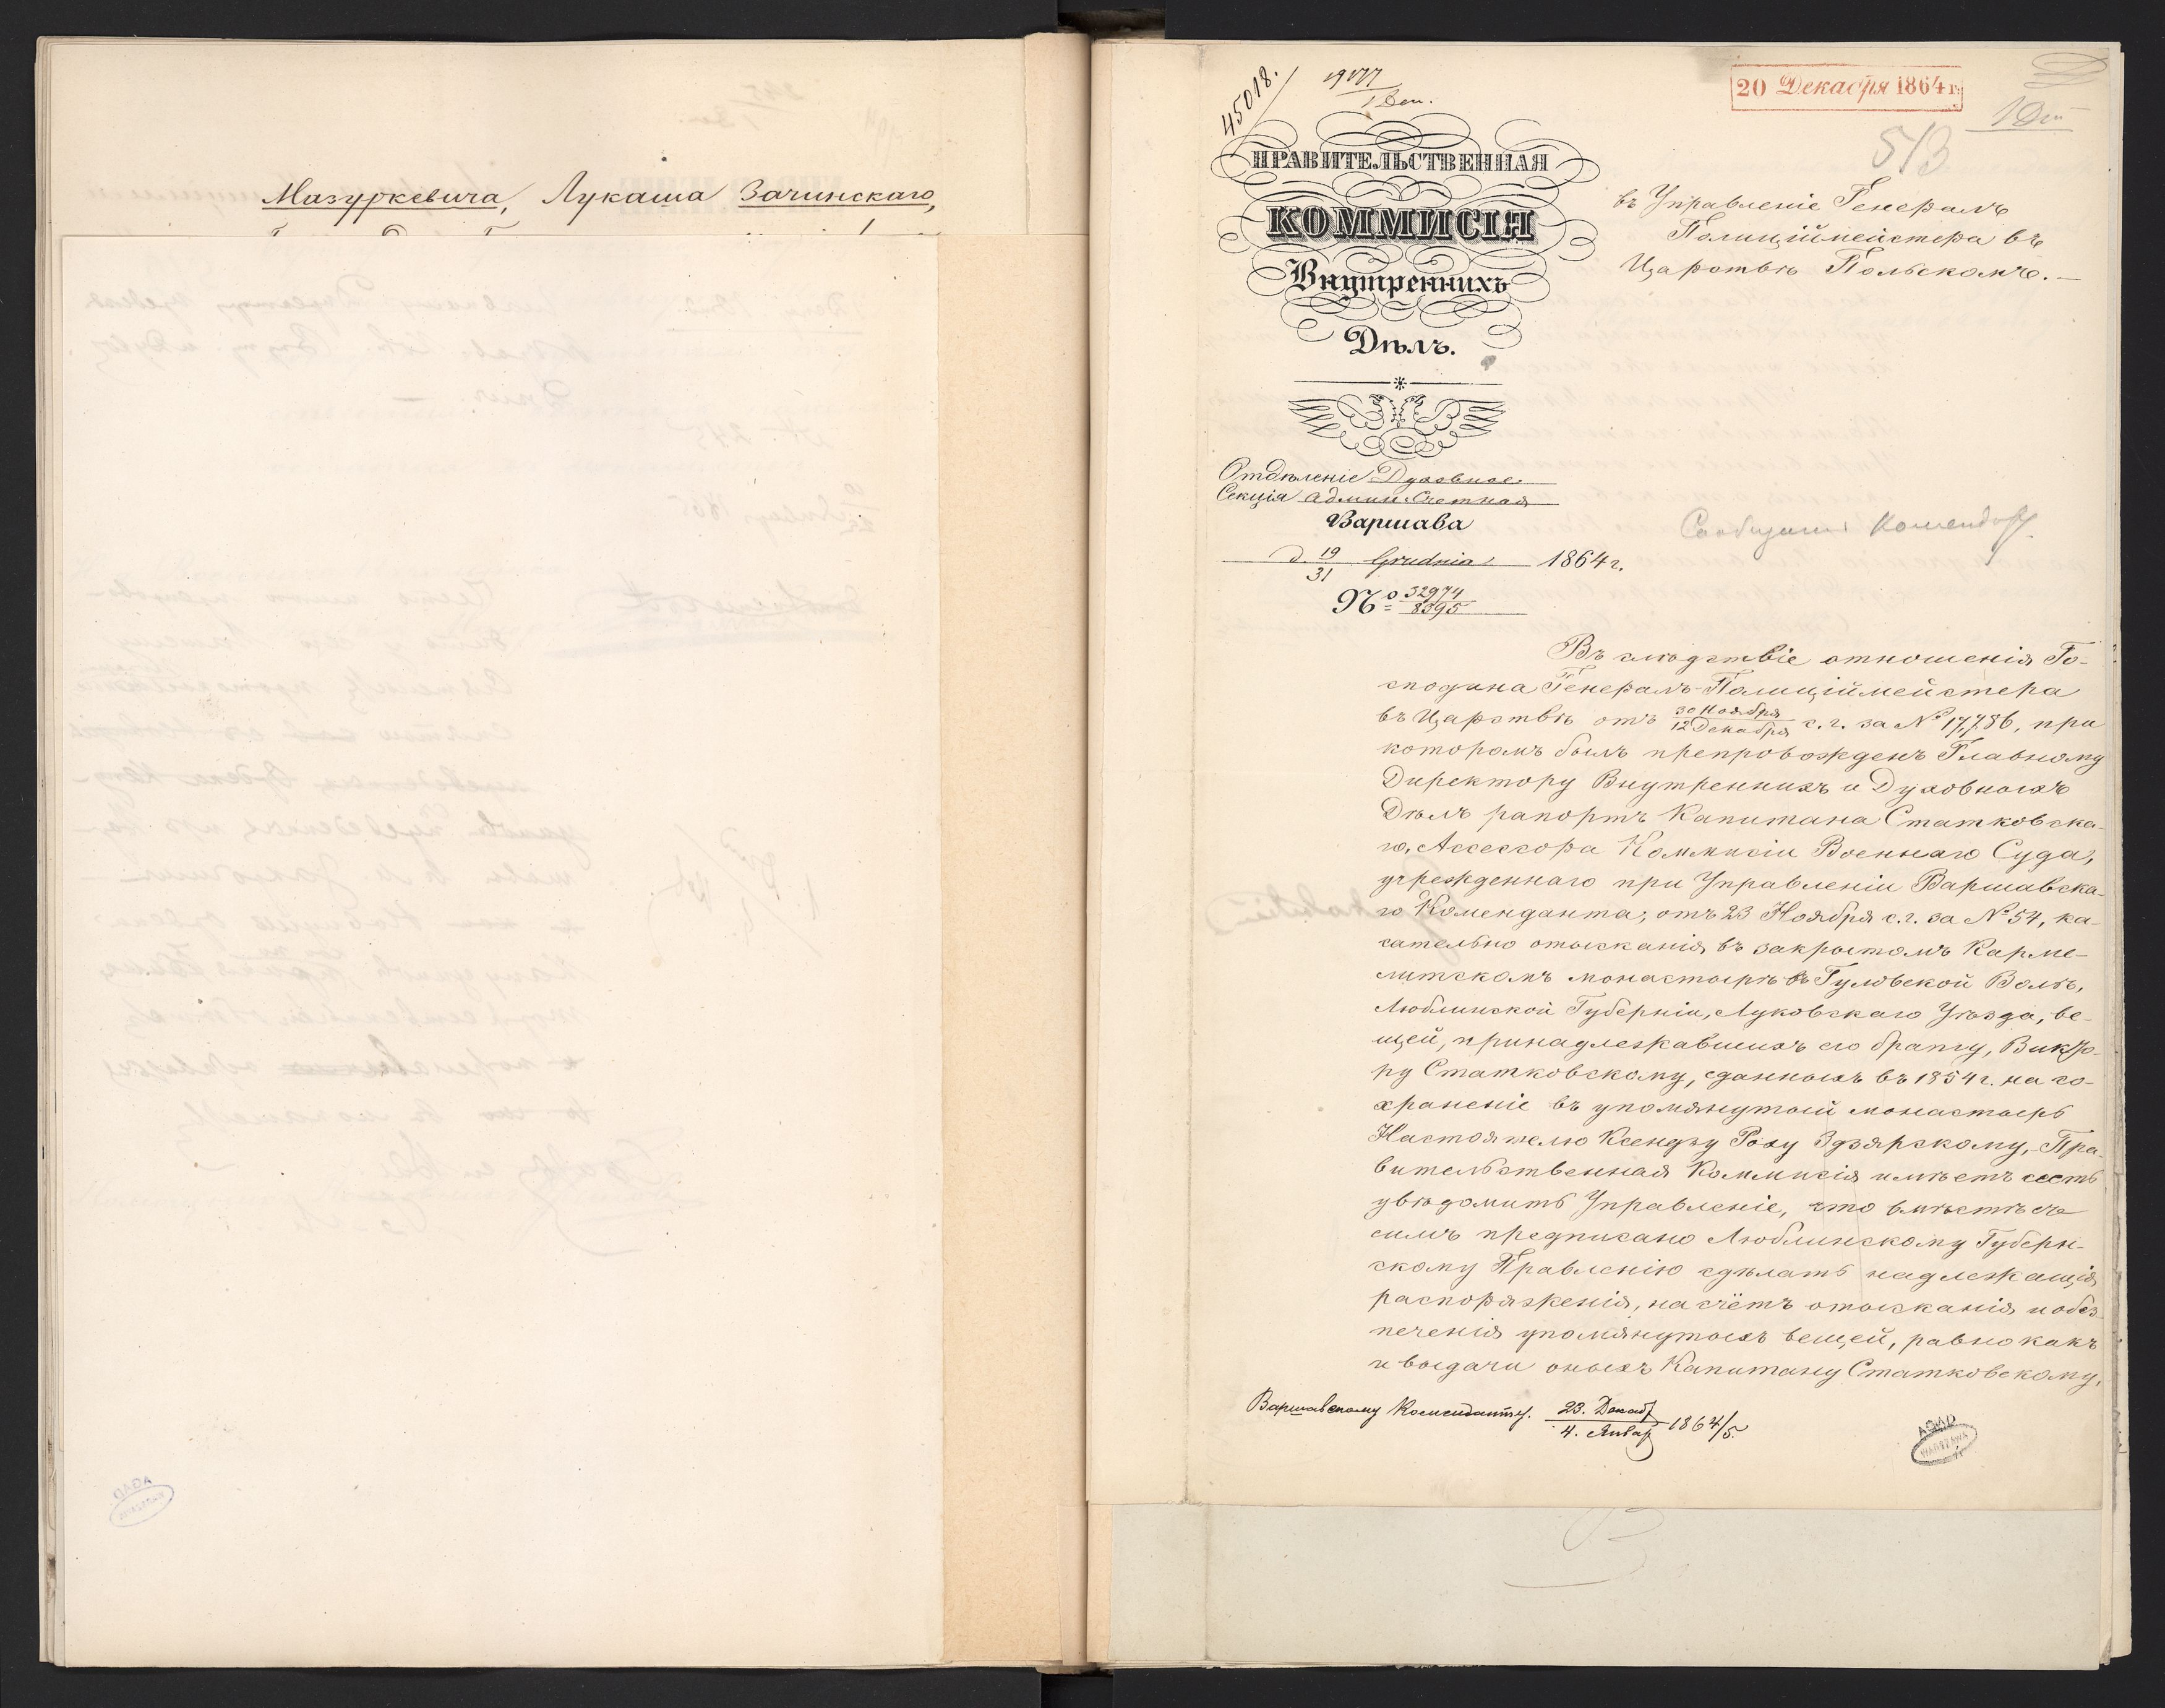 Мазуркевича, Лукаша Зачинскаго,
45018.
1 Ден.
20 Декабря 1864 г.
513
ПРАВИТЕЛЬСТВЕННАЯ
КОММИСІЯ
Внутреннихъ
Дѣлъ.
въ Управленіе Генералъ
Полиціймейстера въ
Царствѣ Польскомъ.
Отдѣленіе Духовное
Секція Админ. Счетная
Варшава
д. 19/31 Grudnia 1864 г.
№ 32974/8395
Въ слѣдствіе отношенія Го-
сподина Генералъ-Полиціймейстера
въ Царствѣ отъ 30 Ноября/12 Декабря с. г. за № 17,786, при
которомъ былъ препровожденъ Главному
Директору Внутреннихъ и Духовныхъ
Дѣлъ рапортъ Капитана Статковска-
го, Ассессора Коммисіи Военнаго Суда,
учрежденнаго при Управленіи Варшавска-
го Коменданта, отъ 23 Ноября с. г. за № 54, ка-
сательно отысканія въ закрытомъ Карме-
литскомъ монастырѣ въ Гуловской Волѣ,
Люблинской Губерніи, Луковскаго Уѣзда, ве-
щей, принадлежавшихъ его брату, Викто-
ру Статковскому, сданныхъ въ 1854 г. на со-
храненіе въ упомянутый монастырь
Настоятелю Ксендзу Роху Здзярскому, Пра-
вительственная Коммисія имѣетъ честь
увѣдомить Управленіе, что вмѣстѣ съ
симъ предписано Люблинскому Губерн-
скому Правленію сдѣлать надлежащія
распоряженія, на счётъ отысканія и обез-
печенія упомянутыхъ вещей, равно какъ
и выдачи оныхъ Капитану Статковскому,
Варшавскому Коменданту. 23. Декаб/4. Январ 1864/5.
AGAD
WARSZAWA